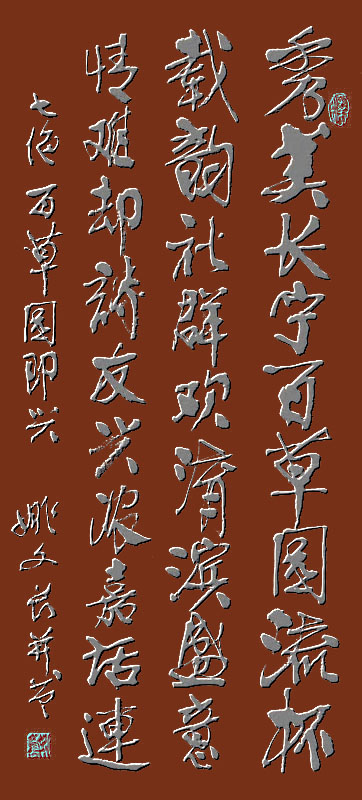 秀美长宁百草园流杯
载韵社群欢济滨盛意
情难却诗友兴浓嘉话连
七绝 百草园即兴 姚文长并书